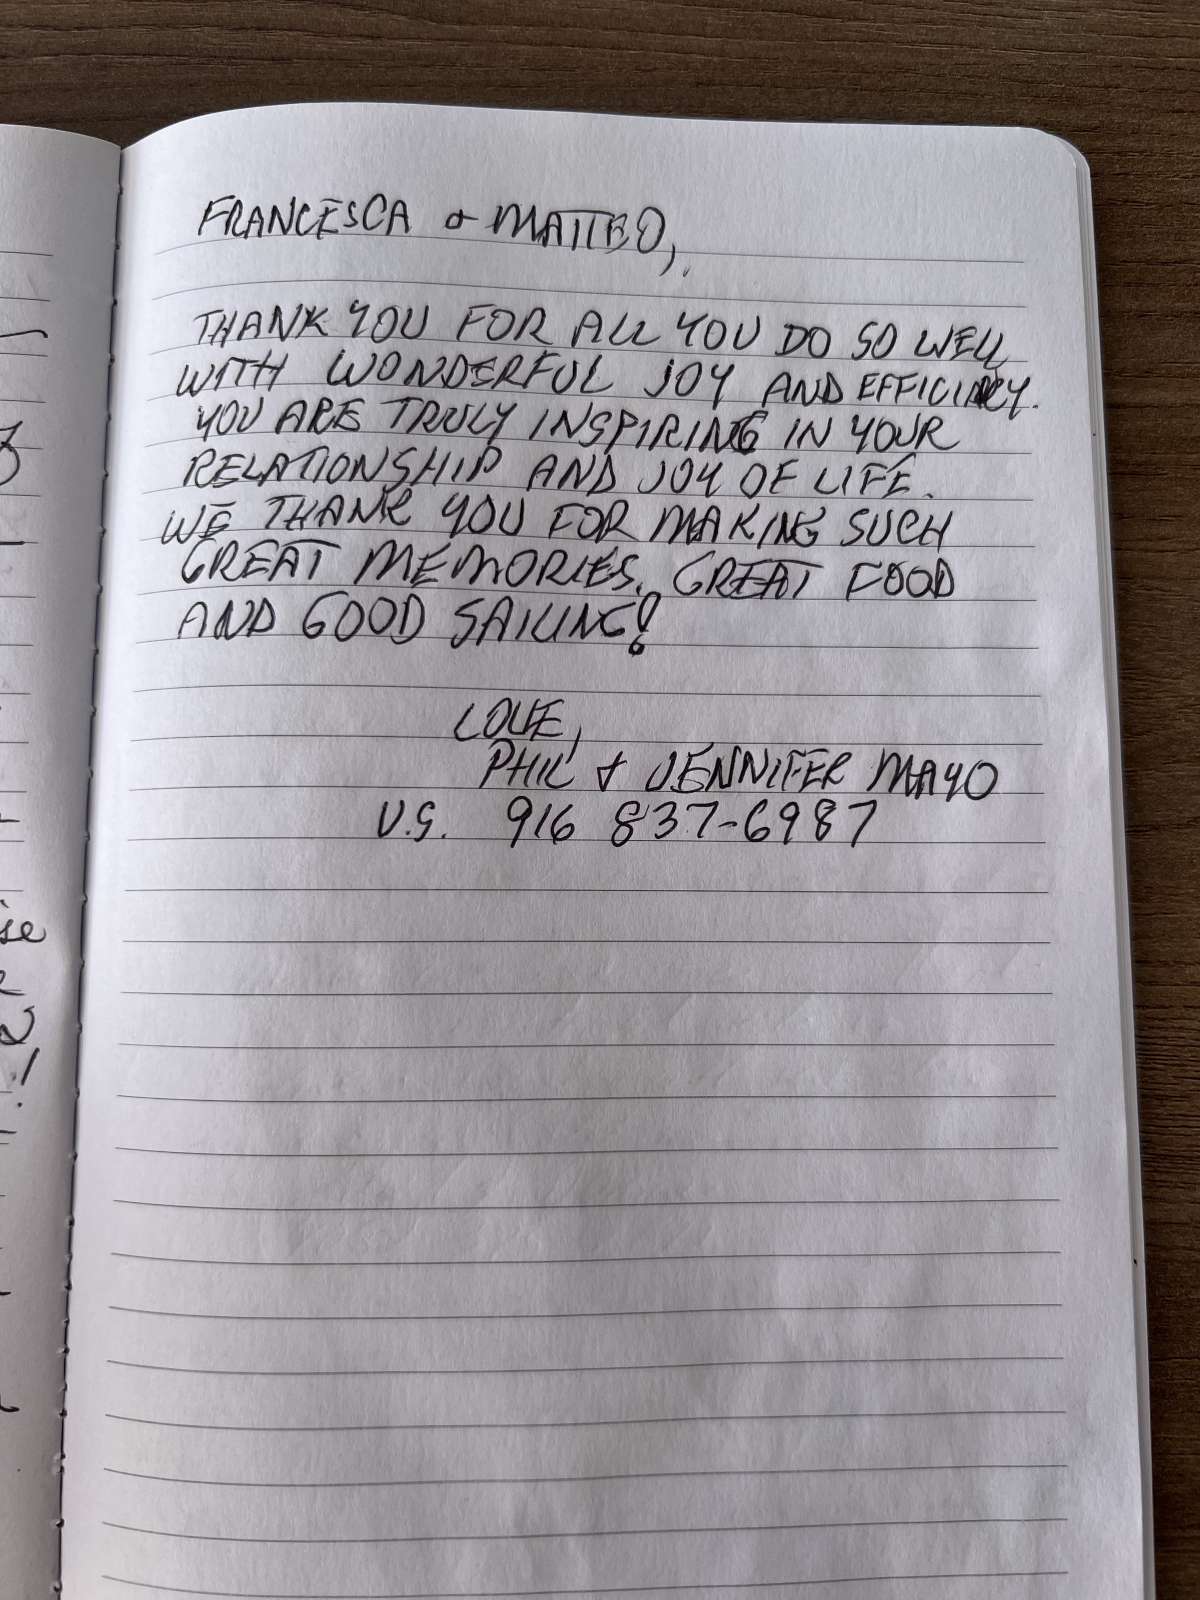 FRANCESCA & MATTEO,
THANK YOU FOR ALL YOU DO SO WELL
WITH WONDERFUL JOY AND EFFICINCY.
YOU ARE TRULY INSPIRING IN YOUR
RELATIONSHIP AND JOY OF LIFE.
WE THANK YOU FOR MAKING SUCH
GREAT MEMORIES. GREAT FOOD
AND GOOD SAILING!
LOVE,
PHIL & JENNIFER MAYO
U.S. 916 837-6987